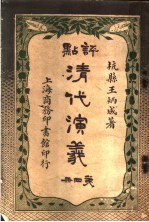 杭縣王炳成著
評點
清代演義
第四冊
上海商務印書館印行